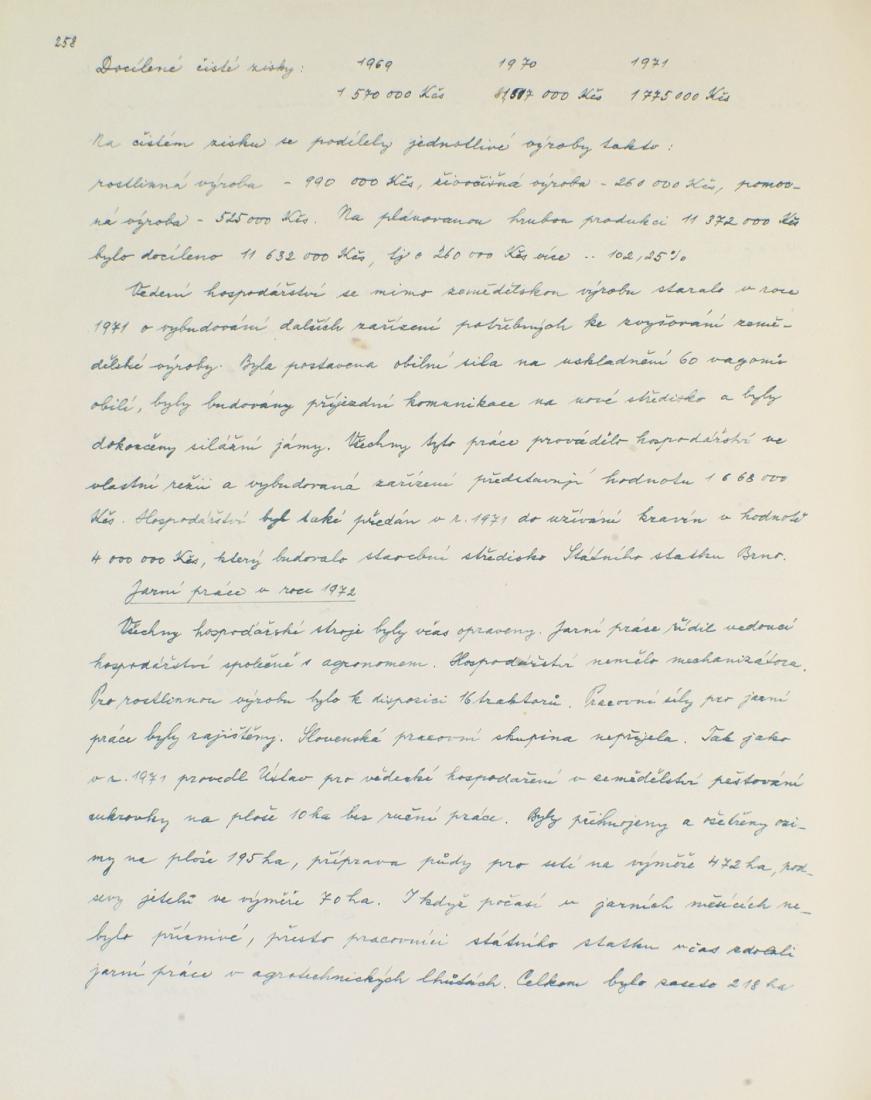 258
Docílené čisté zisky: 1969 1970 1971
1 570 000 Kčs 1 517 000 Kčs 1 775 000 Kčs
Na čistém zisku se podílely jednotlivé výroby takto:
rostlinná výroba - 990 000 Kčs, živočišná výroba - 260 000 Kčs, pomoc-
ná výroba - 525 000 Kčs. Na plánovanou hrubou produkci 11 372 000 Kčs
bylo docíleno 11 632 000 Kčs, tj o 260 000 Kčs více .. 102,25 %
Vedení hospodářství se mimo zemědělskou výrobu staralo v roce
1971 o vybudování dalších zařízení potřebných ke zvyšování země-
dělské výroby. Byla postavena obilní sila na uskladnění 60 vagonů
obilí, byly budovány příjezdní komunikace na nové středisko a byly
dokončeny silážní jámy. Všechny tyto práce provádělo hospodářství ve
vlastní režii a vybudovaná zařízení představují hodnotu 1 668 000
Kčs. Hospodářství byl také předán v r. 1971 do užívání kravín v hodnotě
4 000 000 Kčs, který budovalo stavební středisko Státního statku Brno.
Jarní práce v roce 1972
Všechny hospodářské stroje byly včas opraveny. Jarní práce řídil vedoucí
hospodářství společně s agronomem. Hospodářství nemělo mechanizátora.
Pro rostlinnou výrobu bylo k disposici 16 traktorů. Pracovní síly pro jarní
práce byly zajištěny. Slovenská pracovní skupina nepřijela. Tak jako
v r. 1971 provedl Ústav pro vědecké hospodaření v zemědělství pěstování
cukrovky na ploše 10 ha bez ruční práce. Byly přihnojeny a ošetřeny ozi-
my na ploše 195 ha, příprava půdy pro setí na výměře 472 ha, pod-
sevy jetelů ve výměře 70 ha. I když počasí v jarních měsících ne-
bylo příznivé, přesto pracovníci státního statku včas zdolali
jarní práce v agrotechnických lhůtách. Celkem bylo zaseto 218 ha